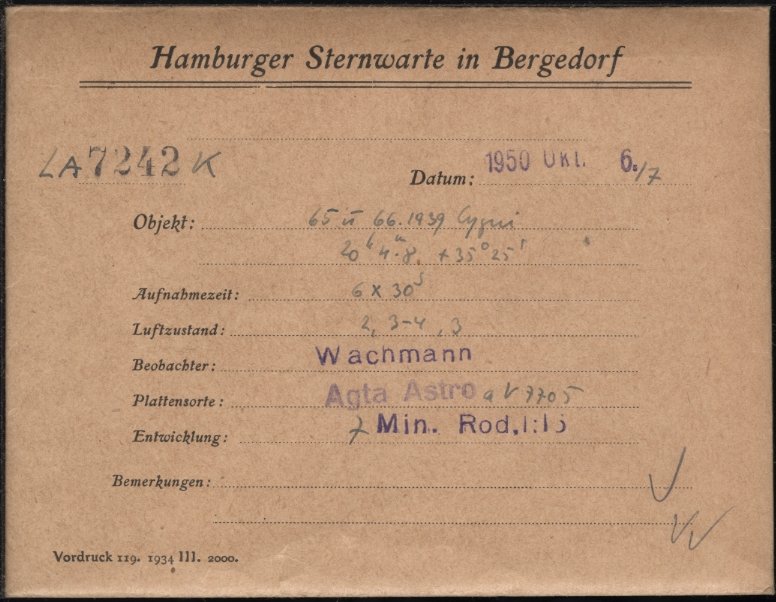 Hamburger Sternwarte in Bergedorf
LA 7242 K
Datum: 1950 Okt. 6./7
Objekt: 65 u 66.1939 Cygni
20h 4m.8 +35° 25'
Aufnahmezeit: 6 x 30s
Luftzustand: 2, 3-4, 3
Beobachter: Wachmann
Plattensorte: Agfa Astro
Entwicklung: 7 Min. Rod. 1:15
Bemerkungen:
Vordruck 119. 1934 III. 2000.